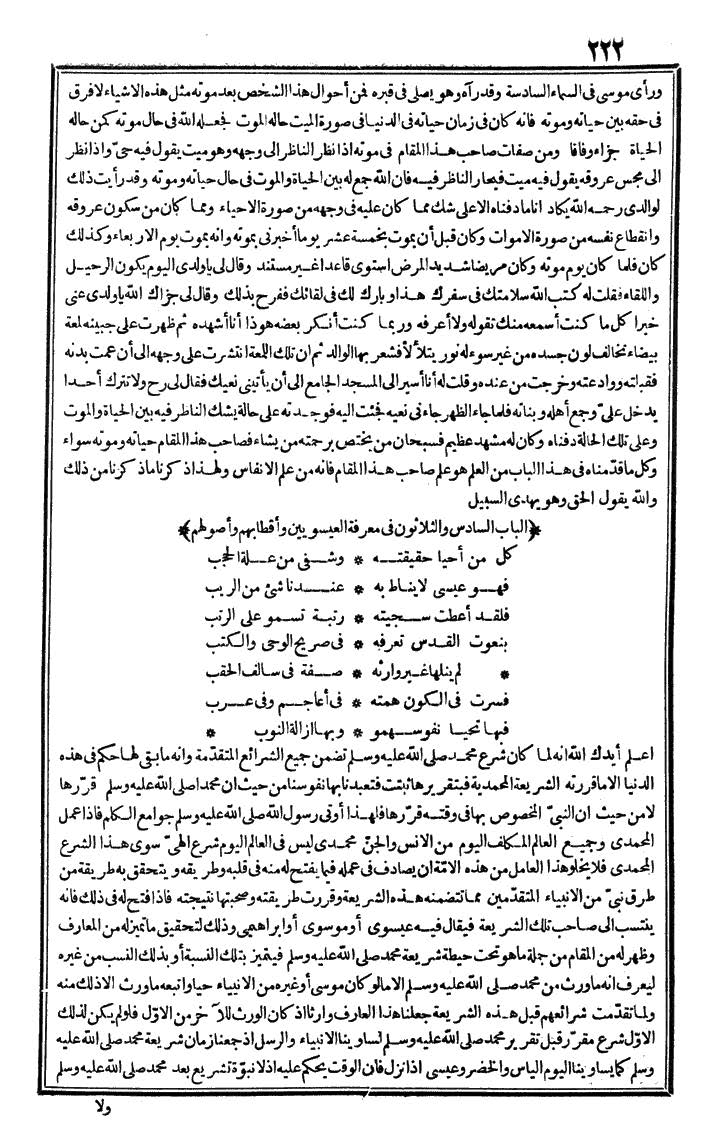 ٢٢٢
ورأى موسى فى السماء السادسة وقدرآه وهو يصلى فى قبره فمن أحوال هذا الشخص بعد موته مثل هذه الاشياء لافرق
فى حقه بين حياته وموته فانه كان فى زمان حياته فى الدنيا فى صورة الميت حاله الموت فجعله الله فى حال موته كمن حاله
الحياة جزاء وفاقا ومن صفات صاحب هذا المقام فى موته اذا نظر الناظر الى وجهه وهو ميت يقول فيه حىّ واذا نظر
الى مجس عروقه يقول فيه ميت فيحار الناظر فيه فان الله جمع له بين الحياة والموت فى حال حياته وموته وقد رأيت ذلك
لوالدى رحمه الله يكاد انا مادفناه الاعلى شك مما كان عليه فى وجهه من صورة الاحياء ومما كان من سكون عروقه
وانقطاع نفسه من صورة الاموات وكان قبل أن يموت بخمسة عشر يوما أخبرنى بموته وانه يموت يوم الاربعاء وكذلك
كان فلما كان يوم موته وكان مريضا شديد المرض استوى قاعدا غير مستند وقال لى ياولدى اليوم يكون الرحيل
واللقاء فقلت له كتب الله سلامتك فى سفرك هذا وبارك لك فى لقائك ففرح بذلك وقال لى جزاك الله ياولدى عنى
خيرا كل ما كنت أسمعه منك تقوله ولا أعرفه وربما كنت أنكر بعضه هوذا أنا أشهده ثم ظهرت على جبينه لمعة
بيضاء تخالف لون جسده من غير سوء له نور يتلألأ فشعر بها الوالد ثم ان تلك اللمعة انتشرت على وجهه الى أن عمت بدنه
فقبلته ووادعته وخرجت من عنده وقلت له أنا أسير الى المسجد الجامع الى أن يأتينى نعيك فقال لى رح ولا تترك أحدا
يدخل علىّ وجمع أهله وبناته فلما جاء الظهر جاءنى نعيه فجئت اليه فوجدته على حالة يشك الناظر فيه بين الحياة والموت
وعلى تلك الحالة دفناه وكان له مشهد عظيم فسبحان من يختص برحمته من يشاء فصاحب هذا المقام حياته وموته سواء
وكل ما قدّمناه فى هذا الباب من العلم هو علم صاحب هذا المقام فانه من علم الانفاس ولهذا ذكرنا ماذكرنا من ذلك
والله يقول الحق وهو يهدى السبيل
﴿الباب السادس والثلاثون فى معرفة العيسويين وأقطابهم وأصولهم﴾
كل من أحيا حقيقته * وشفى من علة الحجب
فهو عيسى لايناط به * عندنا شئ من الريب
فلقد أعطت سجيته * رتبة تسمو على الرتب
بنعوت القدس تعرفه * فى صريح الوحى والكتب
* لم ينلها غير وارثه * صفة فى سالف الحقب
فسرت فى الكون همته * فى أعاجم وفى عرب
فبها تحيا نفوسهمو * وبها ازالة النوب *
اعلم أيدك الله انه لما كان شرع محمد صلى الله عليه وسلم تضمن جميع الشرائع المتقدّمة وانه مابقى لها حكم فى هذه
الدنيا الا ماقررته الشريعة المحمدية فبتقريرها ثبتت فتعبدنا بها نفوسنا من حيث ان محمدا صلى الله عليه وسلم قرّرها
لا من حيث ان النبىّ المخصوص بها فى وقته قرّرها فلهذا أوتى رسول الله صلى الله عليه وسلم جوامع الكلم فاذا عمل
المحمدى وجميع العالم المكلف اليوم من الانس والجنّ محمدى ليس فى العالم اليوم شرع الهىّ سوى هذا الشرع
المحمدى فلا يخلو هذا العامل من هذه الامّة ان يصادف فى عمله فيما يفتح له منه فى قلبه وطريقه ويتحقق به طريقة من
طرق نبىّ من الانبياء المتقدّمين مما تتضمنه هذه الشريعة وقررت طريقته وصحبتها نتيجته فاذا فتح له فى ذلك فانه
ينتسب الى صاحب تلك الشريعة فيقال فيه عيسوى أو موسوى أو ابراهيمى وذلك لتحقيق ماتميز له من المعارف
وظهر له من المقام من جملة ماهو تحت حيطة شريعة محمد صلى الله عليه وسلم فيتميز بتلك النسبة أو بذلك النسب من غيره
ليعرف انه ماورث من محمد صلى الله عليه وسلم الا مالو كان موسى أو غيره من الانبياء حيا واتبعه ماورث الا ذلك منه
ولما تقدّمت شرائعهم قبل هذه الشريعة جعلنا هذا العارف وارثا اذ كان الورث للآخر من الاوّل فلو لم يكن لذلك
الاوّل شرع مقرّر قبل تقرير محمد صلى الله عليه وسلم لساوينا الانبياء والرسل اذ جمعنا زمان شريعة محمد صلى الله عليه
وسلم كما يساوينا اليوم الياس والخضر وعيسى اذا نزل فان الوقت يحكم عليه اذ لا نبوّة تشريع بعد محمد صلى الله عليه وسلم
ولا